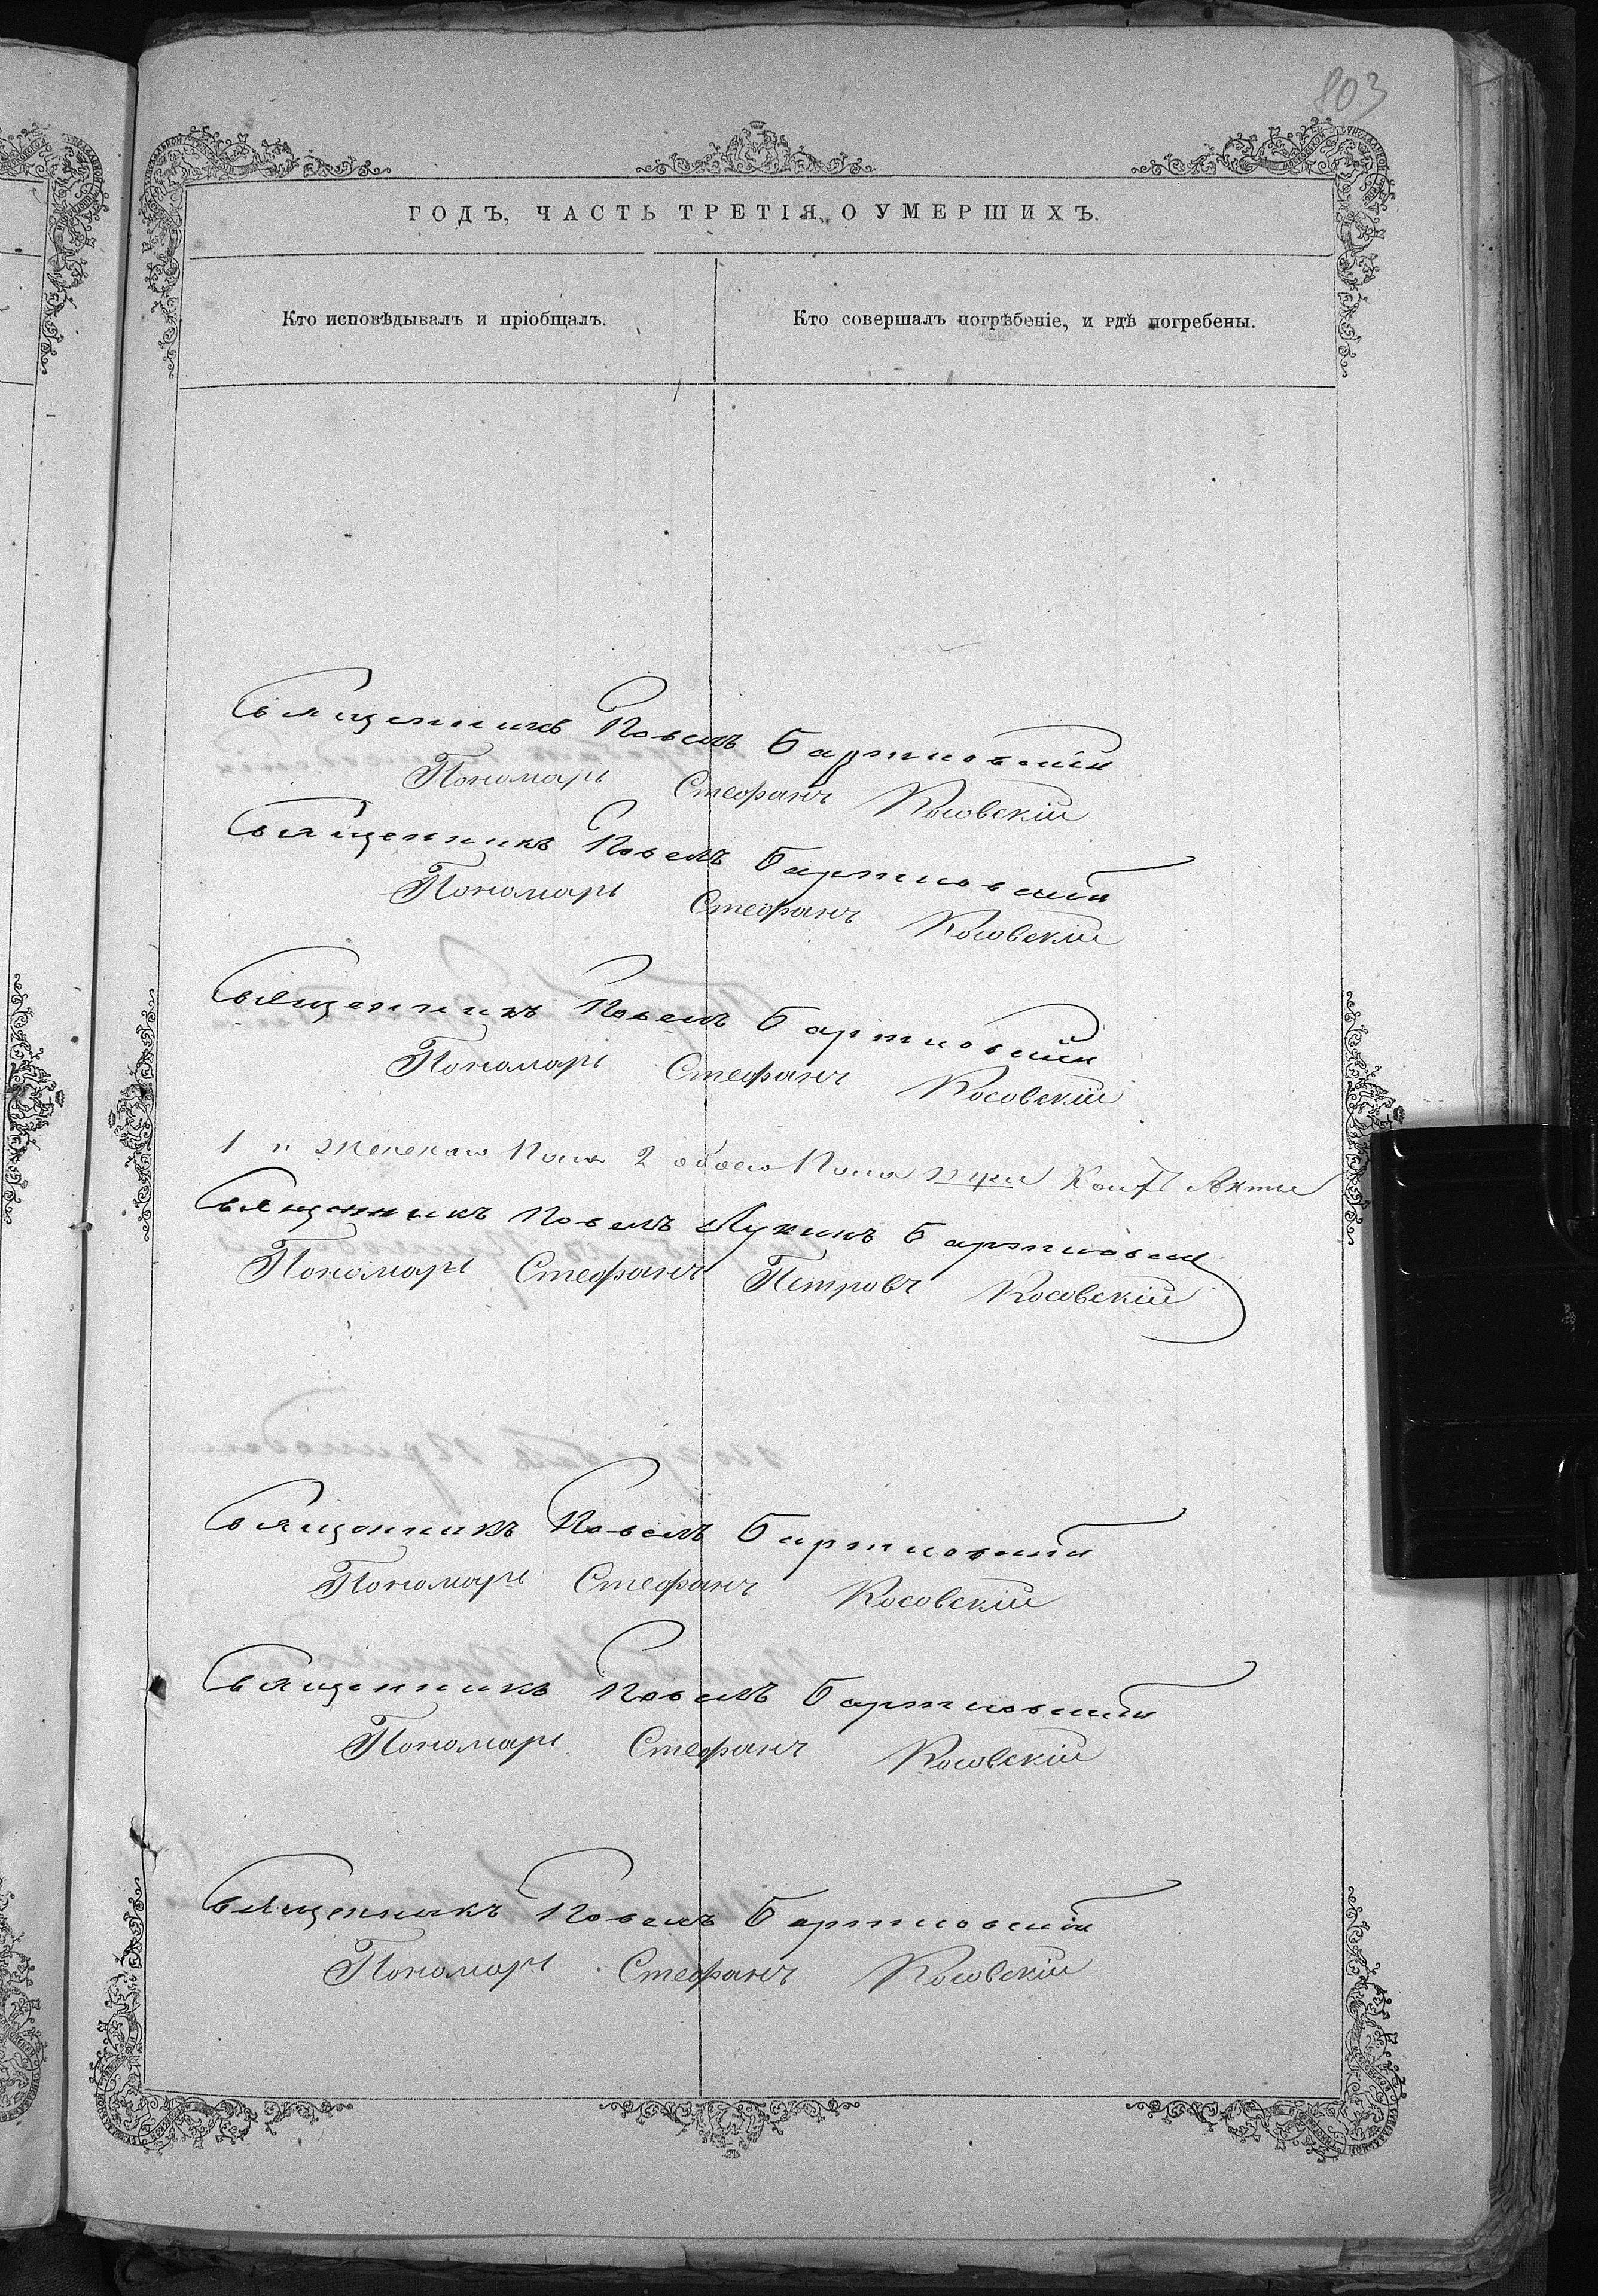 803
ГОДЪ, ЧАСТЬ ТРЕТІЯ, О УМЕРШИХЪ.
Кто исповѣдывалъ и пріобщалъ.
Кто совершалъ погрѣбеніе, и гдѣ погребены.
Священникъ Павелъ Бартновскій
Пономарь Стефанъ Косовскій
Священникъ Павелъ Бартновскій
Пономарь Стефанъ Косовскій
Священникъ Павелъ Бартновскій
Пономарь Стефанъ Косовскій
1 и женскаго Пола 2 обоего Пола три
Священникъ Павелъ Лукинъ Бартновскій
Пономарь Стефанъ Петровъ Косовскій
Священникъ Павелъ Бартновскій
Пономарь Стефанъ Косовскій
Священникъ Павелъ Бартновскій
Пономарь Стефанъ Косовскій
Священникъ Павелъ Бартновскій
Пономарь Стефанъ Косовскій